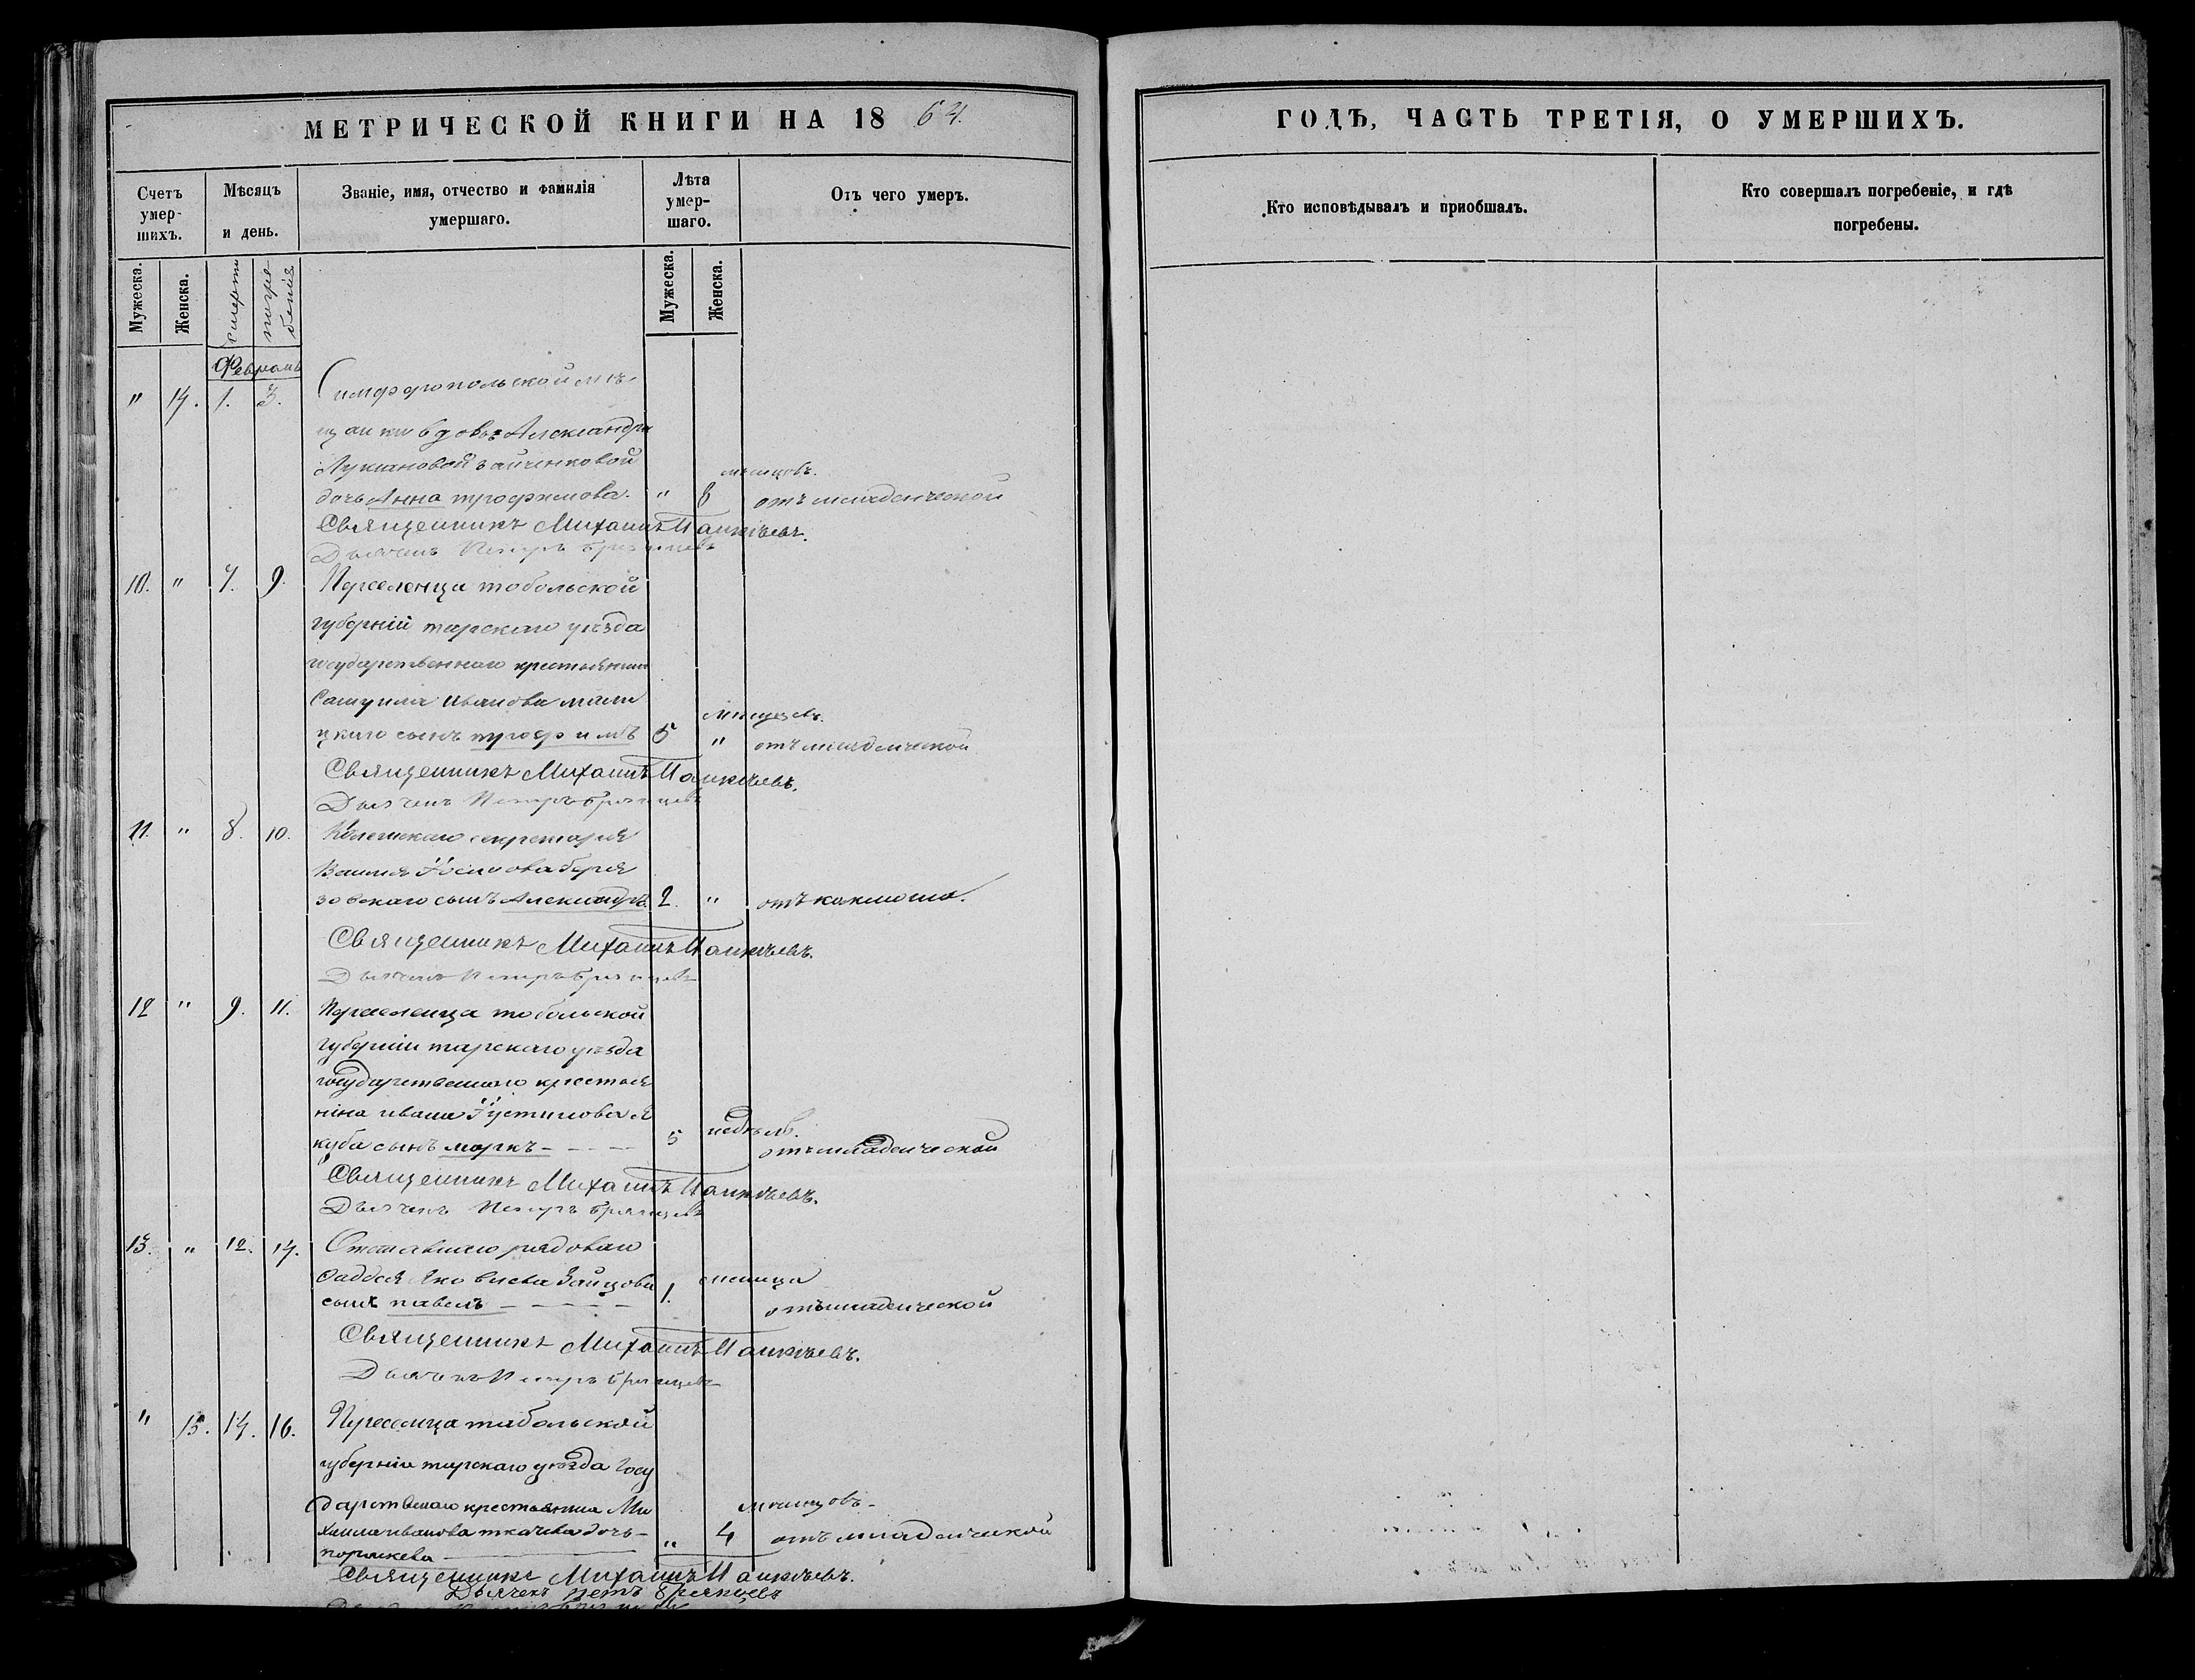 МЕТРИЧЕСКОЙ КНИГИ НА 18 64.
Счетъ умер-шихъ.
Мѣсяцъ и день.
Званіе, имя, отчество и фамилія умершаго.
Лѣта умер-шаго.
Отъ чего умеръ.
Мужеска.
Женска.
смерти
погре-
бенія
Мужеска.
Женска.
Февраль
" 14. 1. 3. Симферопольской мѣ-
щанки вдовы Александры
Лукіановой
мѣсяцовъ.
дочь Анна трофимова. " 8 отъ младенческой
Священникъ Михаилъ
Дьячекъ Петръ Брянцевъ
10. " 7. 9. Переселенца тобольской
губерніи тарскаго уѣзда
государственнаго крестьянина
Самуила Иванова мали
мѣсяцевъ.
цкаго сынъ трофимъ 5 " отъ младенческой
Священникъ Михаилъ
Дьячекъ Петръ Брянцевъ
11. " 8. 10. Колежскаго секретаря
Василія Осипова Берез
зовскаго сынъ Александръ. 2. " отъ коклюша.
Священникъ Михаилъ
Дьячекъ Петръ Брянцевъ
12 " 9. 11. Переселенца тобольской
губерніи тарскаго уѣзда
государственнаго крестья
нина ивана Іустинова Я
недѣль.
куба сынъ маркъ - - - - 5 отъ младенческой
Священникъ Михаилъ
Дьячекъ Петръ Брянцевъ
13. " 12. 14. Отставнаго рядоваго
Фаддея Яковлева Зайцова 1. месяца
сынъ павелъ - - - - отъ младенческой
Священникъ Михаилъ
Дьячекъ Петръ Брянцевъ
" 15. 14. 16. Переселенца табольской
губерніи тарскаго уѣзда Госу
дарственаго крестьянина Ми мѣсяцовъ-
хаила иванова ткачева дочь- " 4 отъ младенческой
порaскева
Священникъ Михаилъ
Дьячекъ петръ Брянцевъ
ГОДЪ, ЧАСТЬ ТРЕТІЯ, О УМЕРШИХЪ.
Кто исповѣдывалъ и приобщалъ.
Кто совершалъ погребеніе, и гдѣ
погребены.